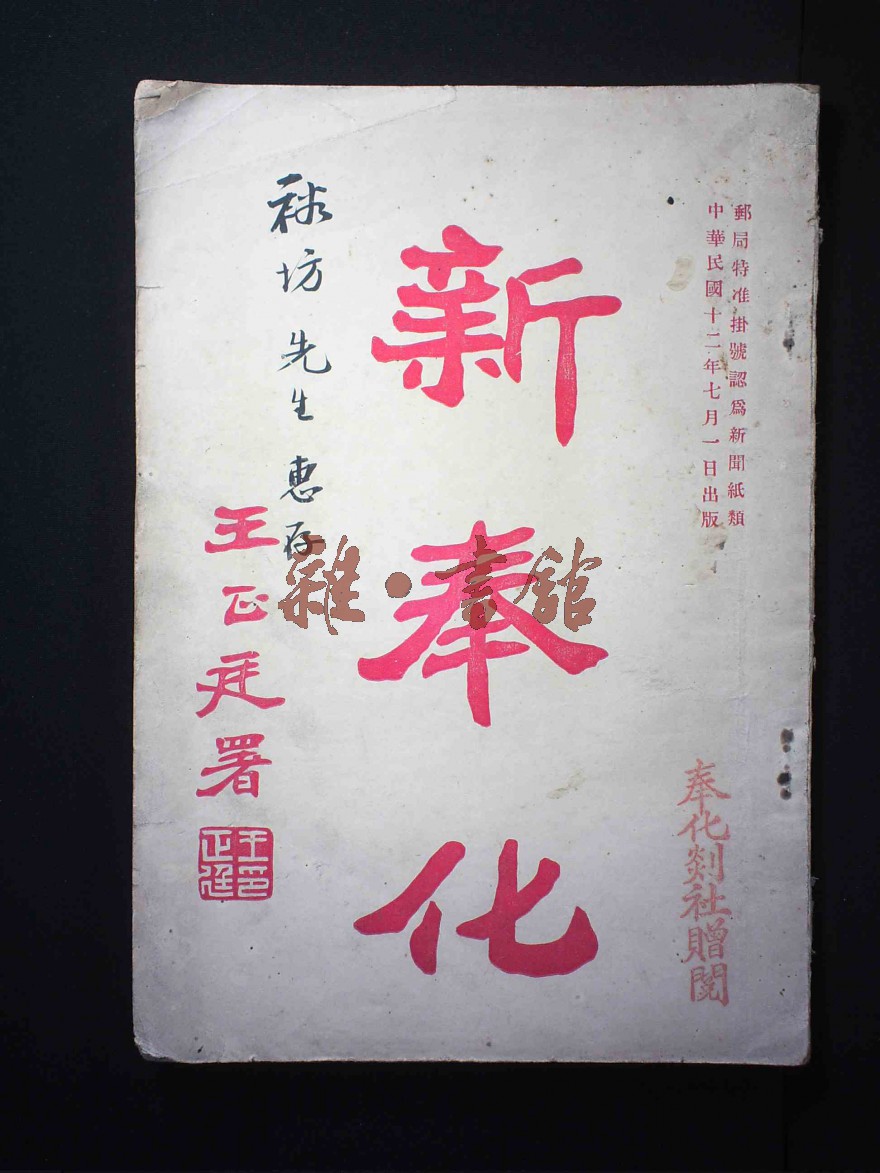 郵局特准掛號認爲新聞紙類
中華民國十二年七月一日出版
奉化剡社贈閱
新奉化
坊先生惠存
王正廷署
王正廷印
雜·書館